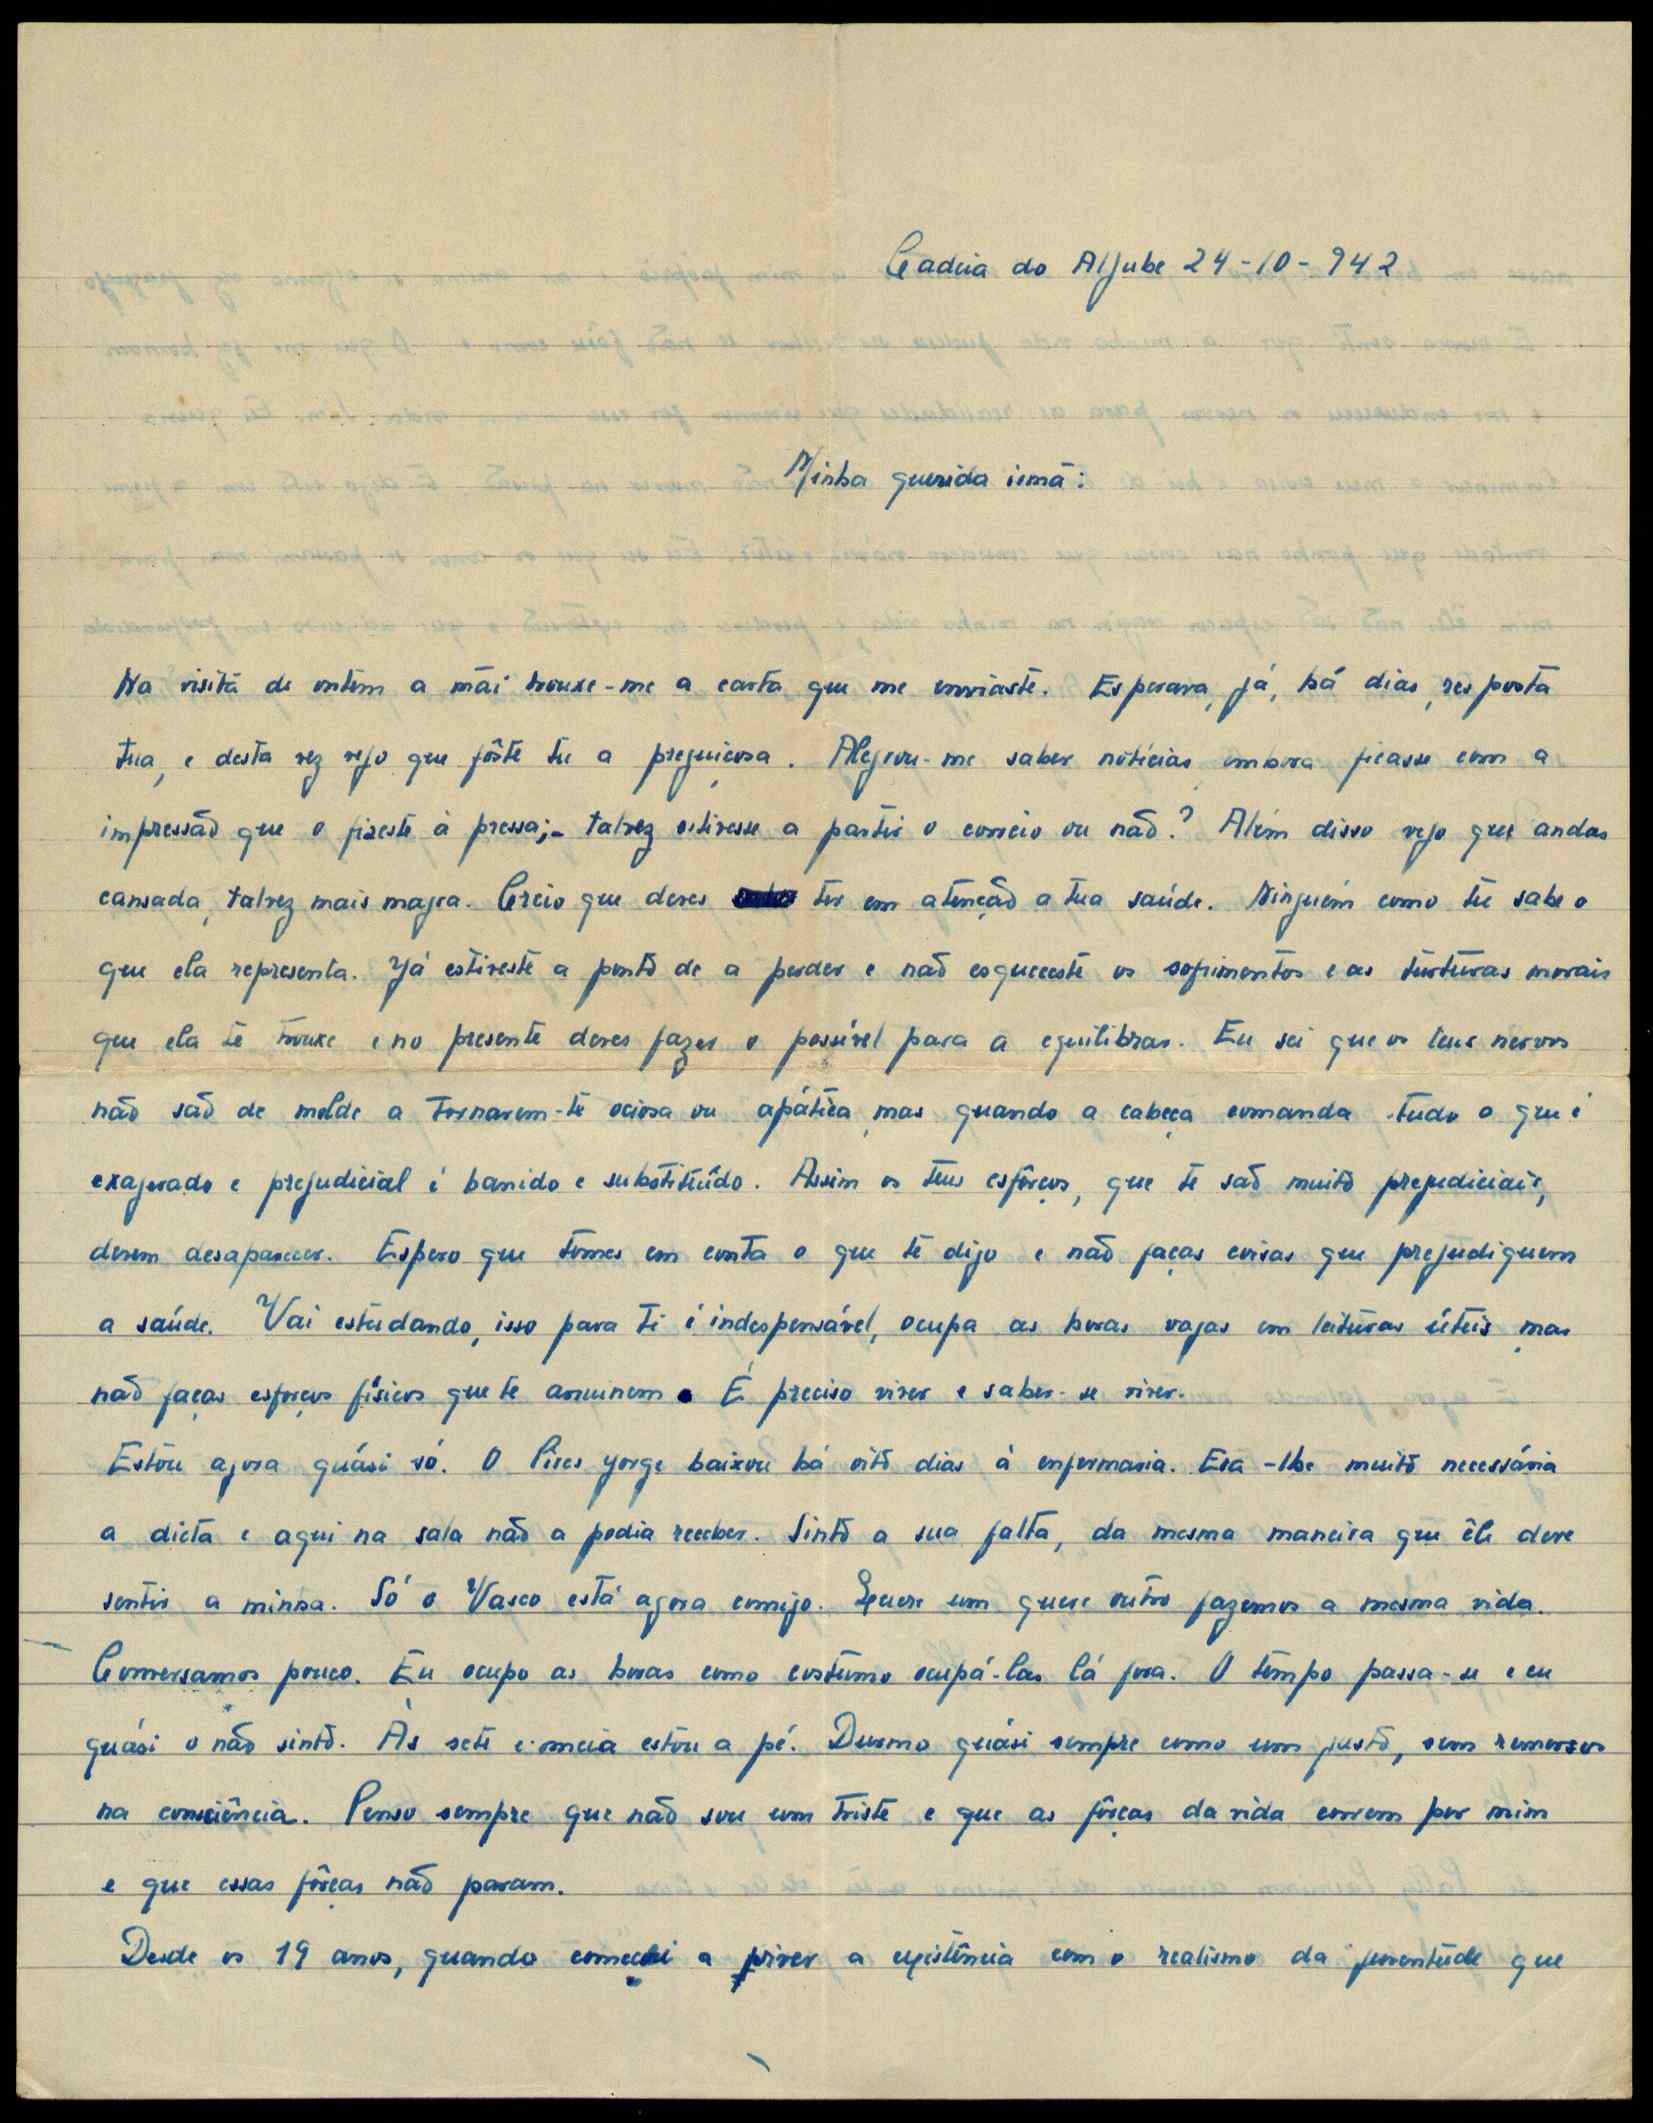 Cadeia do Aljube 24-10-942
Minha querida irmã:
Na visita de ontem a mãi trouxe-me a carta que me enviaste. Esperava, já, há dias, resposta
tua, e desta vez vejo que fôste tu a preguiçosa. Alegrou-me saber notícias, embora ficasse com a
impressão que o fizeste à pressa;- talvez estivesse a partir o correio ou não? Além disso vejo que andas
cansada, talvez mais magra. Creio que deves ter em atenção a tua saúde. Ninguém como tu sabe o
que ela representa. Já estiveste a ponto de a perder e não esqueceste os sofrimentos e as torturas morais
que ela te trouxe e no presente deves fazer o possível para a equilibrar. Eu sei que os teus nervos
não são de molde a tornarem-te ociosa ou apática, mas quando a cabeça comanda tudo o que é
exagerado e prejudicial é banido e substituído. Assim os teus esfôrços, que te são muito prejudiciais,
devem desaparecer. Espero que tomes em conta o que te digo e não faças coisas que prejudiquem
a saúde. Vai estudando, isso para ti é indespensável, ocupa as horas vagas em leituras úteis, mas
não faças esforços físicos que te arruinem. É preciso viver e saber-se viver.
Estou agora quási só. O Pires Jorge baixou há oito dias à enfermaria. Era-lhe muito necessária
a dieta e aqui na sala não a podia receber. Sinto a sua falta, da mesma maneira que êle deve
sentir a minha. Só o Vasco está agora comigo. Quere um quere outro fazemos a mesma vida.
Conversamos pouco. Eu ocupo as horas como costumo ocupá-las lá fora. O tempo passa-se e eu
quási o não sinto. Às sete e meia estou a pé. Durmo quási sempre como um justo, sem remorsos
na consciência. Penso sempre que não sou um triste e que as fôrças da vida correm por mim
e que essas fôrças não param.
Desde os 19 anos, quando comecei a viver a existência com o realismo da juventude que